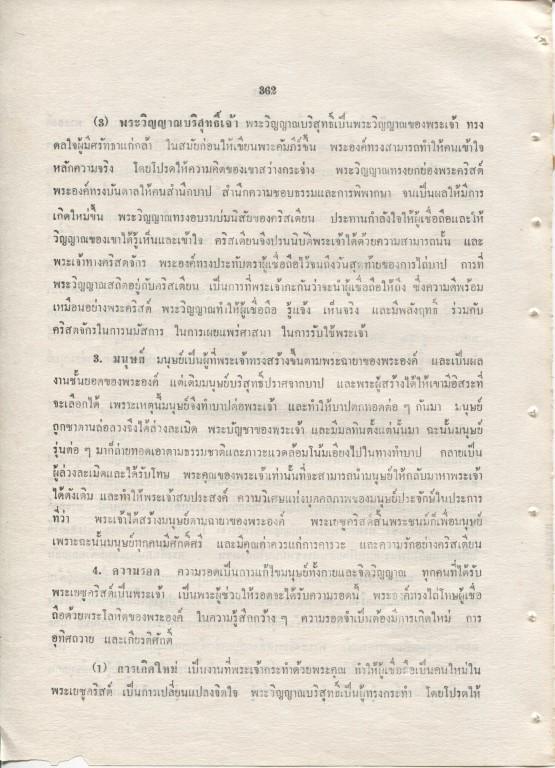 362
(3) พระวิญญาณบริสุทธิ์เจ้า พระวิญญาณบริสุทธิ์เป็นพระวิญญาณของพระเจ้า ทรง
ดลใจผู้มีศรัทธาแก่กล้า ในสมัยก่อนให้เขียนพระคัมภีร์ขึ้น พระองค์ทรงสามารถทำให้คนเข้าใจ
หลักความจริง โดยโปรดให้ความคิดของเขาสว่างกระจ่าง พระวิญญาณทรงยกย่องพระคริสต์
พระองค์ทรงบันดาลให้คนสำนึกบาป สำนึกความชอบธรรมและการพิพากษา จนเป็นผลให้มีการ
เกิดใหม่ขึ้น พระวิญญาณทรงอบรมบ่มนิสัยของคริสเตียน ประทานกำลังใจให้ผู้เชื่อถือและให้
วิญญาณของเขาได้รู้เห็นและเข้าใจ คริสเตียนจึงปรนนิบัติพระเจ้าได้ด้วยความสามารถนั้น และ
พระเจ้าทางคริสตจักร พระองค์ทรงประทับตราผู้เชื่อถือไว้จนถึงวันสุดท้ายของการไถ่บาป การที่
พระวิญญาณสถิตอยู่กับคริสเตียน เป็นการที่พระเจ้ากะกันว่าจะนำผู้เชื่อถือให้ถึง ซึ่งความดีพร้อม
เหมือนอย่างพระคริสต์ พระวิญญาณทำให้ผู้เชื่อถือ รู้แจ้ง เห็นจริง และมีพลังฤทธิ์ ร่วมกับ
คริสตจักรในการนมัสการ ในการเผยแพร่ศาสนา ในการรับใช้พระเจ้า
3. มนุษย์ มนุษย์เป็นผู้ที่พระเจ้าทรงสร้างขึ้นตามพระฉายาของพระองค์ และเป็นผล
งานชั้นยอดของพระองค์ แต่เดิมมนุษย์บริสุทธิ์ปราศจากบาป และพระผู้สร้างได้ให้เขามีอิสระที่
จะเลือกได้ เพราะเหตุนี้มนุษย์จึงทำบาปต่อพระเจ้า และทำให้บาปตกทอดต่อ ๆ กันมา มนุษย์
ถูกซาตานล่อลวงจึงได้ล่วงละเมิด พระบัญชาของพระเจ้า และมีมลทินตั้งแต่นั้นมา ฉะนั้นมนุษย์
รุ่นต่อ ๆ มาก็ถ่ายทอดเอาตามธรรมชาติและภาวะแวดล้อมโน้มเอียงไปในทางทำบาป กลายเป็น
ผู้ล่วงละเมิดและได้รับโทษ พระคุณของพระเจ้าเท่านั้นที่จะสามารถนำมนุษย์ให้กลับมาหาพระเจ้า
ได้ดังเดิม และทำให้พระเจ้าสมประสงค์ ความวิเศษแห่งบุคคลภาพของมนุษย์ประจักษ์ในประการ
ที่ว่า พระเจ้าได้สร้างมนุษย์ตามฉายาของพระองค์ พระเยซูคริสต์สิ้นพระชนม์ก็เพื่อมนุษย์
เพราะฉะนั้นมนุษย์ทุกคนมีศักดิ์ศรี และมีคุณค่าควรแก่การคารวะ และความรักอย่างคริสเตียน
4. ความรอด ความรอดเป็นการแก้ไขมนุษย์ทั้งกายและจิตวิญญาณ ทุกคนที่ได้รับ
พระเยซูคริสต์เป็นพระเจ้า เป็นพระผู้ช่วยให้รอดจะได้รับความรอดนี้ พระองค์ทรงไถ่โทษผู้เชื่อ
ถือด้วยพระโลหิตของพระองค์ ในความรู้สึกกว้าง ๆ ความรอดจำเป็นต้องมีการเกิดใหม่ การ
อุทิศถวาย และเกียรติศักดิ์
(1) การเกิดใหม่ เป็นงานที่พระเจ้ากระทำด้วยพระคุณ ทำให้ผู้เชื่อถือเป็นคนใหม่ใน
พระเยซูคริสต์ เป็นการเปลี่ยนแปลงจิตใจ พระวิญญาณบริสุทธิ์เป็นผู้ทรงกระทำ โดยโปรดให้